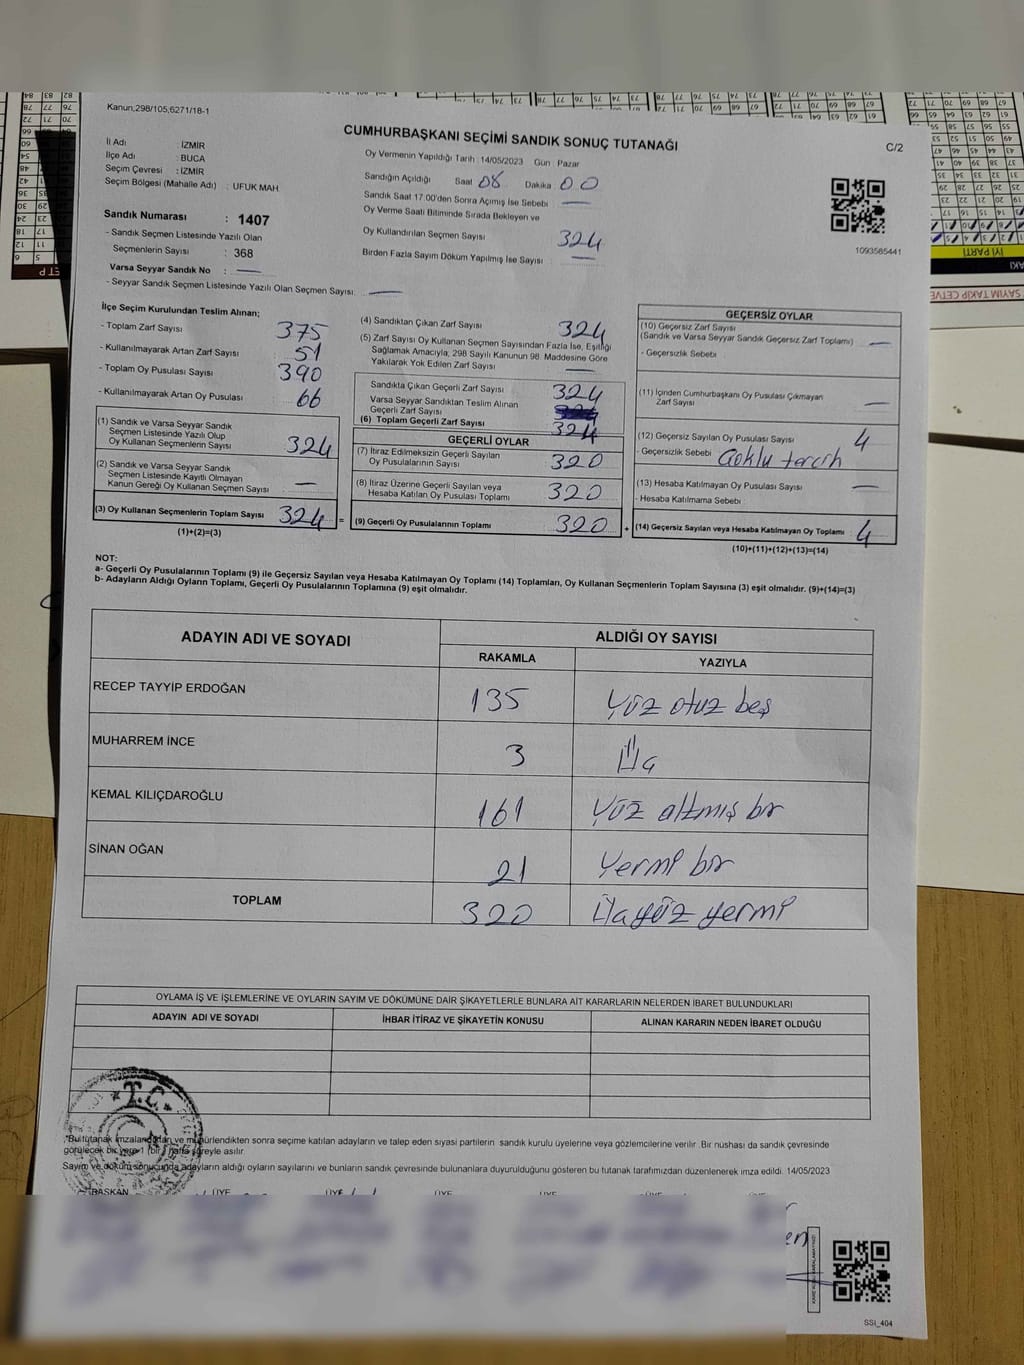 Kanun,298/105,6271/18-1
CUMHURBAŞKANI SEÇİMİ SANDIK SONUÇ TUTANAĞI
C/2
İl Adı : İZMİR
İlçe Adı : BUCA
Seçim Çevresi : İZMİR
Seçim Bölgesi (Mahalle Adı) : UFUK MAH
Sandık Numarası : 1407
- Sandık Seçmen Listesinde Yazılı Olan
Seçmenlerin Sayısı : 368
Varsa Seyyar Sandık No : —
- Seyyar Sandık Seçmen Listesinde Yazılı Olan Seçmen Sayısı: —
Oy Vermenin Yapıldığı Tarih : 14/05/2023 Gün : Pazar
Sandığın Açıldığı Saat 08 Dakika 00
Sandık Saat 17:00'den Sonra Açımış İse Sebebi —
Oy Verme Saati Bitiminde Sırada Bekleyen ve
Oy Kullandırılan Seçmen Sayısı 324
Birden Fazla Sayım Döküm Yapılmış İse Sayısı : —
1093585441
İlçe Seçim Kurulundan Teslim Alınan;
- Toplam Zarf Sayısı 375
- Kullanılmayarak Artan Zarf Sayısı 51
- Toplam Oy Pusulası Sayısı 390
- Kullanılmayarak Artan Oy Pusulası 66
(1) Sandık ve Varsa Seyyar Sandık
Seçmen Listesinde Yazılı Olup
Oy Kullanan Seçmenlerin Sayısı 324
(2) Sandık ve Varsa Seyyar Sandık
Seçmen Listesinde Kayıtlı Olmayan
Kanun Gereği Oy Kullanan Seçmen Sayısı —
(3) Oy Kullanan Seçmenlerin Toplam Sayısı 324 =
(1)+(2)=(3)
(4) Sandıktan Çıkan Zarf Sayısı 324
(5) Zarf Sayısı Oy Kullanan Seçmen Sayısından Fazla İse, Eşitliği
Sağlamak Amacıyla, 298 Sayılı Kanunun 98. Maddesine Göre
Yakılarak Yok Edilen Zarf Sayısı —
Sandıkta Çıkan Geçerli Zarf Sayısı 324
Varsa Seyyar Sandıktan Teslim Alınan
Geçerli Zarf Sayısı
(6) Toplam Geçerli Zarf Sayısı 324
GEÇERLİ OYLAR
(7) İtiraz Edilmeksizin Geçerli Sayılan
Oy Pusulalarının Sayısı 320
(8) İtiraz Üzerine Geçerli Sayılan veya
Hesaba Katılan Oy Pusulası Toplamı 320
(9) Geçerli Oy Pusulalarının Toplamı 320 +
GEÇERSİZ OYLAR
(10) Geçersiz Zarf Sayısı
(Sandık ve Varsa Seyyar Sandık Geçersiz Zarf Toplamı) —
- Geçersizlik Sebebi
(11) İçinden Cumhurbaşkanı Oy Pusulası Çıkmayan
Zarf Sayısı —
(12) Geçersiz Sayılan Oy Pusulası Sayısı 4
- Geçersizlik Sebebi Çoklu tercih
(13) Hesaba Katılmayan Oy Pusulası Sayısı —
- Hesaba Katılmama Sebebi
(14) Geçersiz Sayılan veya Hesaba Katılmayan Oy Toplamı 4
(10)+(11)+(12)+(13)=(14)
NOT:
a- Geçerli Oy Pusulalarının Toplamı (9) ile Geçersiz Sayılan veya Hesaba Katılmayan Oy Toplamı (14) Toplamları, Oy Kullanan Seçmenlerin Toplam Sayısına (3) eşit olmalıdır. (9)+(14)=(3)
b- Adayların Aldığı Oyların Toplamı, Geçerli Oy Pusulalarının Toplamına (9) eşit olmalıdır.
ADAYIN ADI VE SOYADI ALDIĞI OY SAYISI
RAKAMLA YAZIYLA
RECEP TAYYİP ERDOĞAN 135 Yüz otuz beş
MUHARREM İNCE 3 Üç
KEMAL KILIÇDAROĞLU 161 Yüz altmış bir
SİNAN OĞAN 21 Yermi bir
TOPLAM 320 Üçyüz yermi
OYLAMA İŞ VE İŞLEMLERİNE VE OYLARIN SAYIM VE DÖKÜMÜNE DAİR ŞİKAYETLERLE BUNLARA AİT KARARLARIN NELERDEN İBARET BULUNDUKLARI
ADAYIN ADI VE SOYADI İHBAR İTİRAZ VE ŞİKAYETİN KONUSU ALINAN KARARIN NEDEN İBARET OLDUĞU
T.C.
*Bu tutanak imzalandıktan ve mühürlendikten sonra seçime katılan adayların ve talep eden siyasi partilerin sandık kurulu üyelerine veya gözlemcilerine verilir. Bir nüshası da sandık çevresinde
görülecek bir yere 1 (bir) hafta süreyle asılır.
Sayım ve döküm sonucunda adayların aldığı oyların sayılarını ve bunların sandık çevresinde bulunanlara duyurulduğunu gösteren bu tutanak tarafımızdan düzenlenerek imza edildi. 14/05/2023
BAŞKAN ÜYE ÜYE ÜYE ÜYE ÜYE ÜYE
SSİ_404
İYİ PARTİ
SAYIM TAKİP ÇETVE